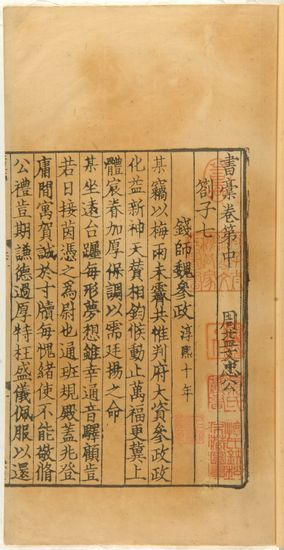 書稾卷第中 周益文忠公
劄子七
錢師魏參政 淳熙十年
某竊以梅雨未霽共惟判府大資參政政
化益新神天贊相鈞候動止萬福更冀上
體宸眷加厚保調以需廷揚之命
某坐遠台躔每形夢想雖幸通音驛顧豈
若日接茵憑之為尉也通班規殿蓋兆登
庸間寓賀誠於寸牘每愧緒使不能敬脩
公禮豈期謙德過厚特枉盛儀佩服以還